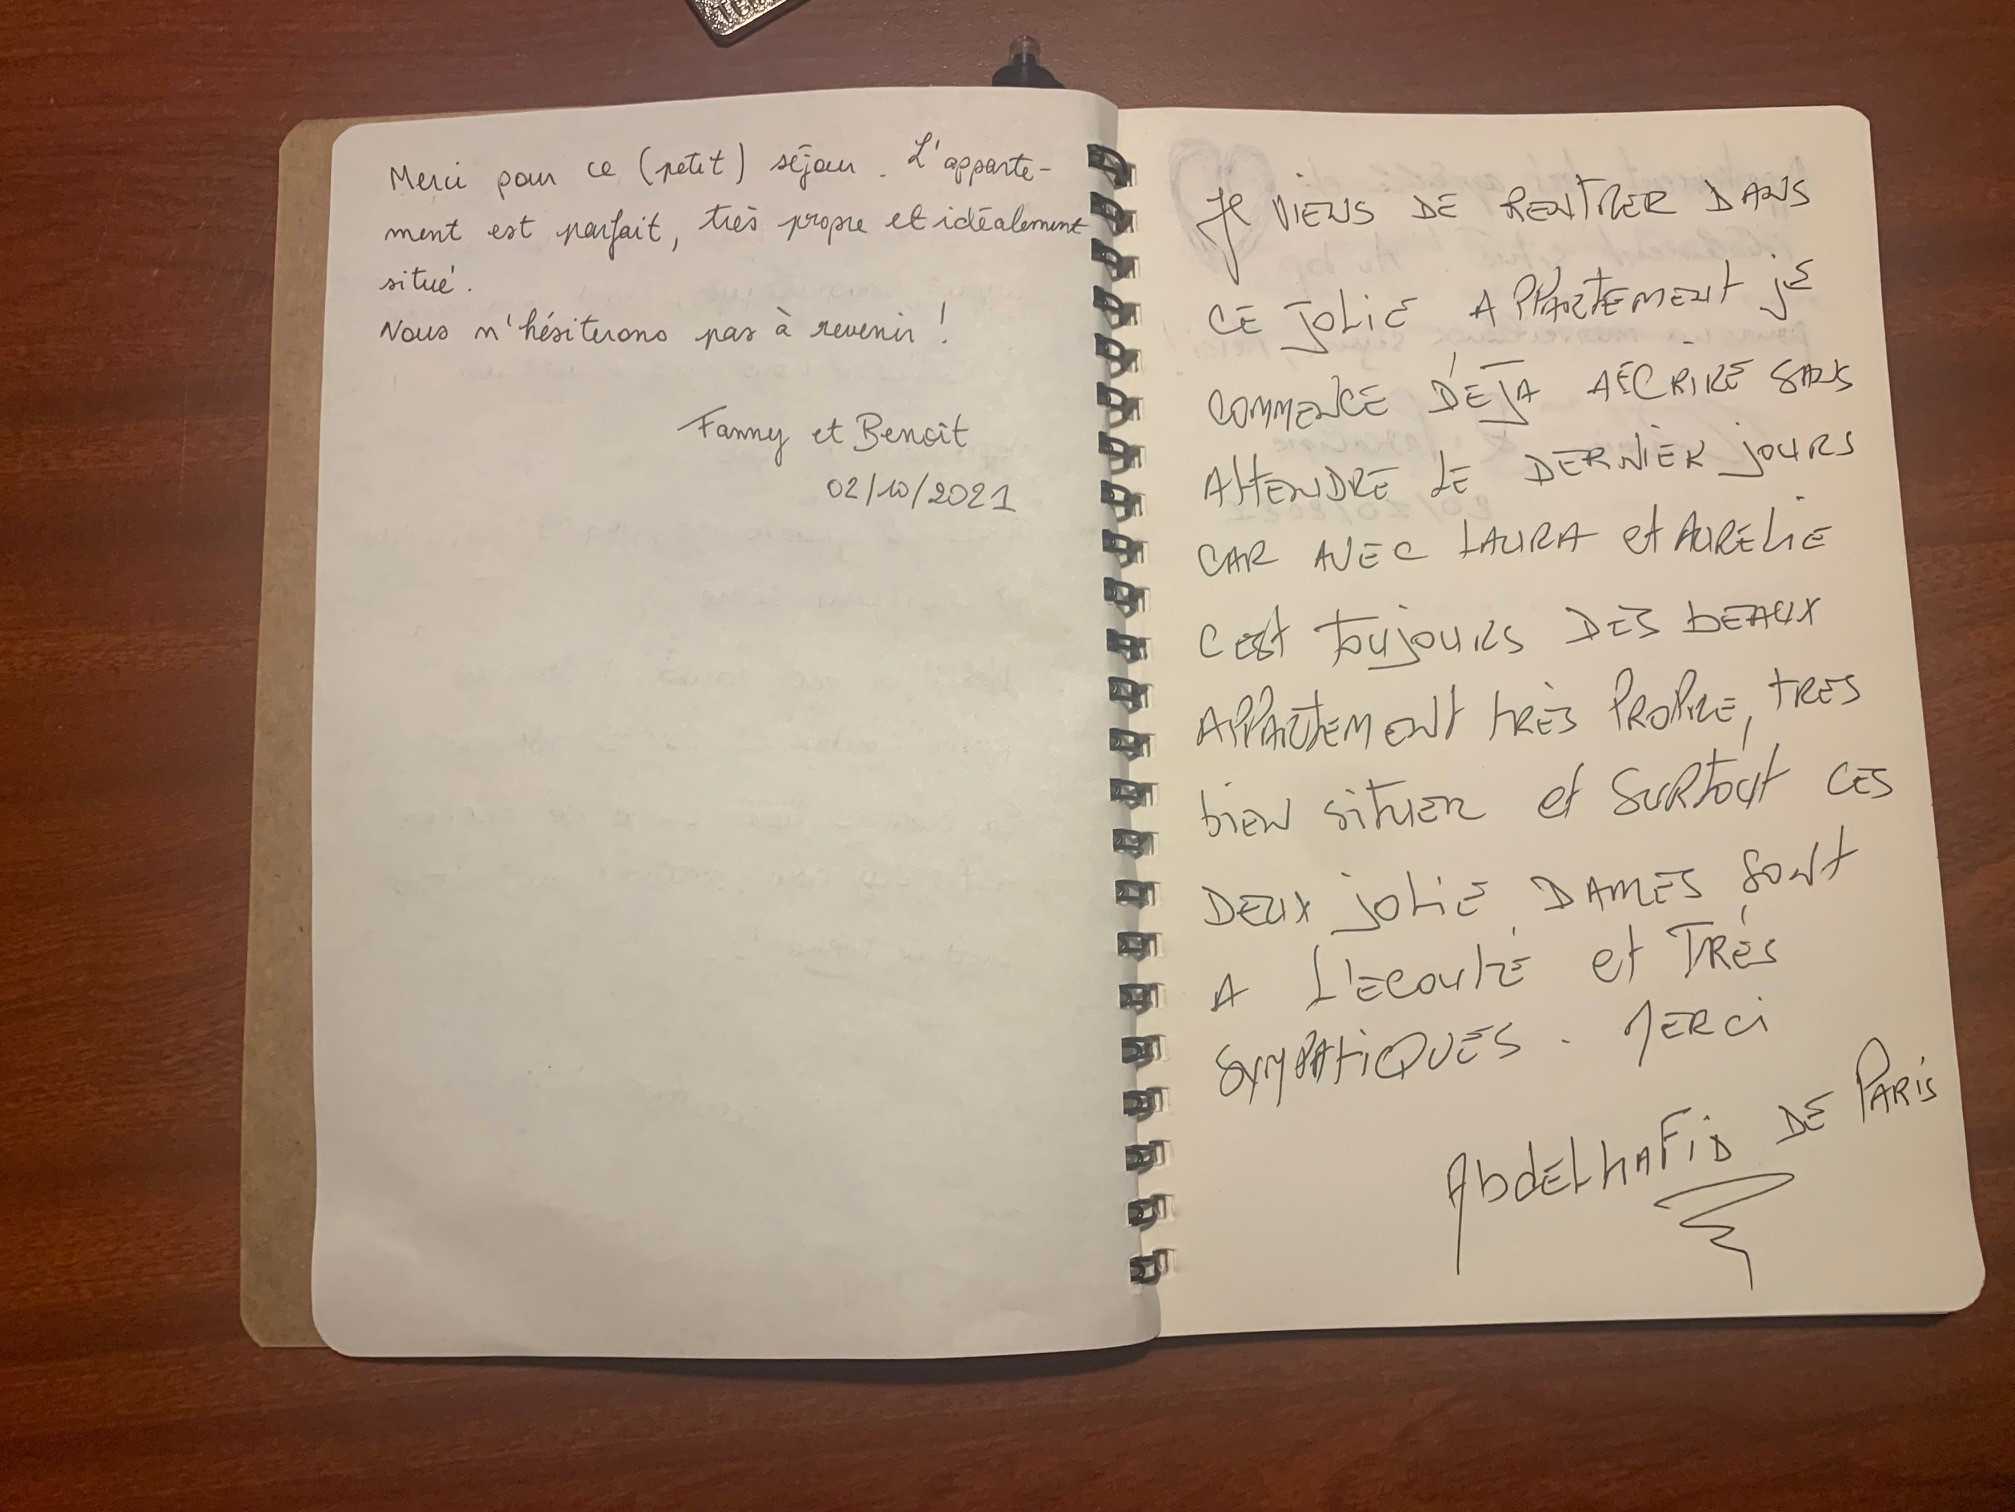 Merci pour ce (petit) séjour. L'apparte-
ment est parfait, très propre et idéalement
situé.
Nous n'hésiterons pas à revenir !
Fanny et Benoît
02/10/2021
Je VIENS DE RENTRER DANS
CE JOLIE APPARTEMENT JE
COMMENCE DÉJA AÉCRIRE SANS
ATTENDRE LE DERNIER JOURS
CAR AVEC LAURA et AURELIE
C'EST TOUJOURS DES BEAUX
APPARTEMENT TRÈS PROPRE, TRES
BIEN SITUER et SURTOUT CES
DEUX JOLIE DAMES SONT
A L'ECOUTE et TRÉS
SYMPATIQUES. MERCI
AbdELHAFID DE PARIS